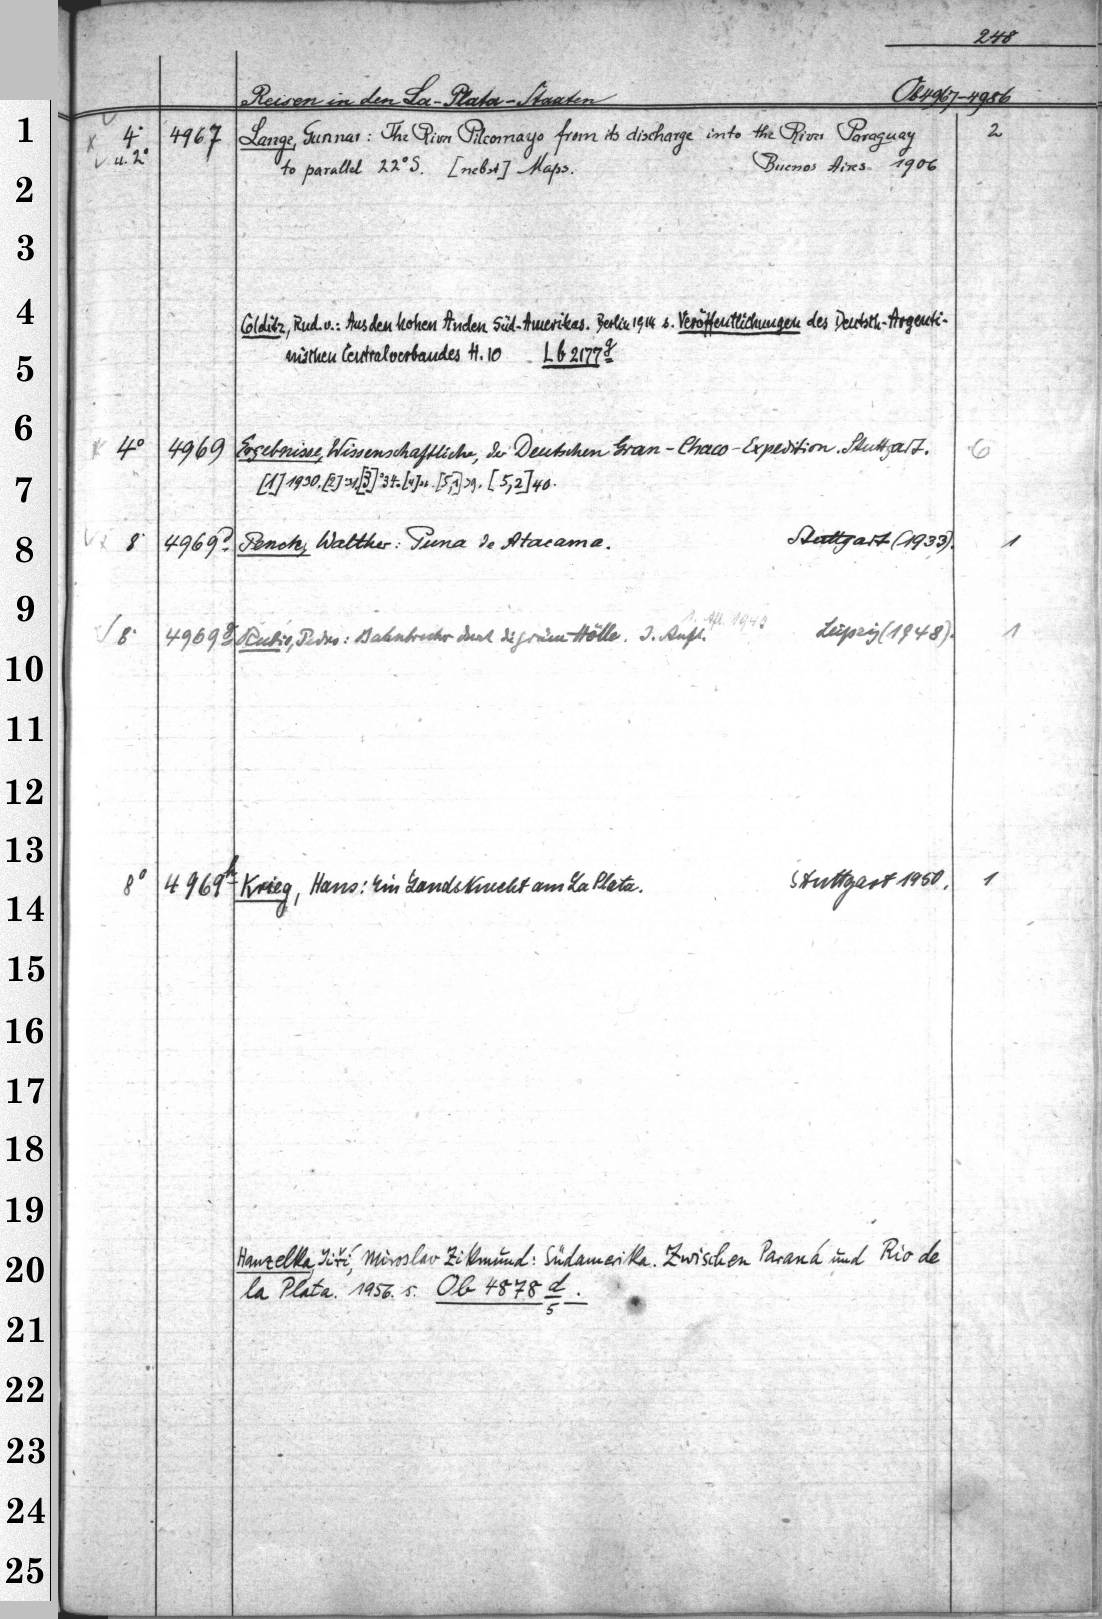 248
Reisen in den La-Plata-Staaten Ob 4967-4986
1 4° 4967 Lange, Gunnar: The River Pilcomayo from its discharge into the River Paraguay 2
u. 2° to parallel 22°S. [nebst] Maps. Buenos Aires 1906
2
3
4 Colditz, Rud. v.: Aus den hohen Anden Süd-Amerikas. Berlin 1914 s. Veröffentlichungen des Deutsch-Argenti-
5 nischen Centralverbandes H. 10 Lb 2177 g
6 4° 4969 Ergebnisse, Wissenschaftliche, der Deutschen Gran-Chaco-Expedition. Stuttgart. 6
7 [1] 1930. [2] 31. [3] 34. [4] [5,1] 39. [5,2] 40.
8 8° 4969 Penck, Walther: Puna de Atacama. Stuttgart (1933). 1
9 1. Afl. 1943
8° 4969 g Pedro: durch die grüne Hölle. 3. Aufl. Leipzig (1948). 1
10
11
12
13 8° 4969 h Krieg, Hans: Ein Landsknecht am La Plata. Stuttgart 1950. 1
14
15
16
17
18
19
20 Hanzelka, Jiří, Miroslav Zikmund: Südamerika. Zwischen Paraná und Rio de
la Plata. 1956. s. Ob 4878 d 5.
21
22
23
24
25